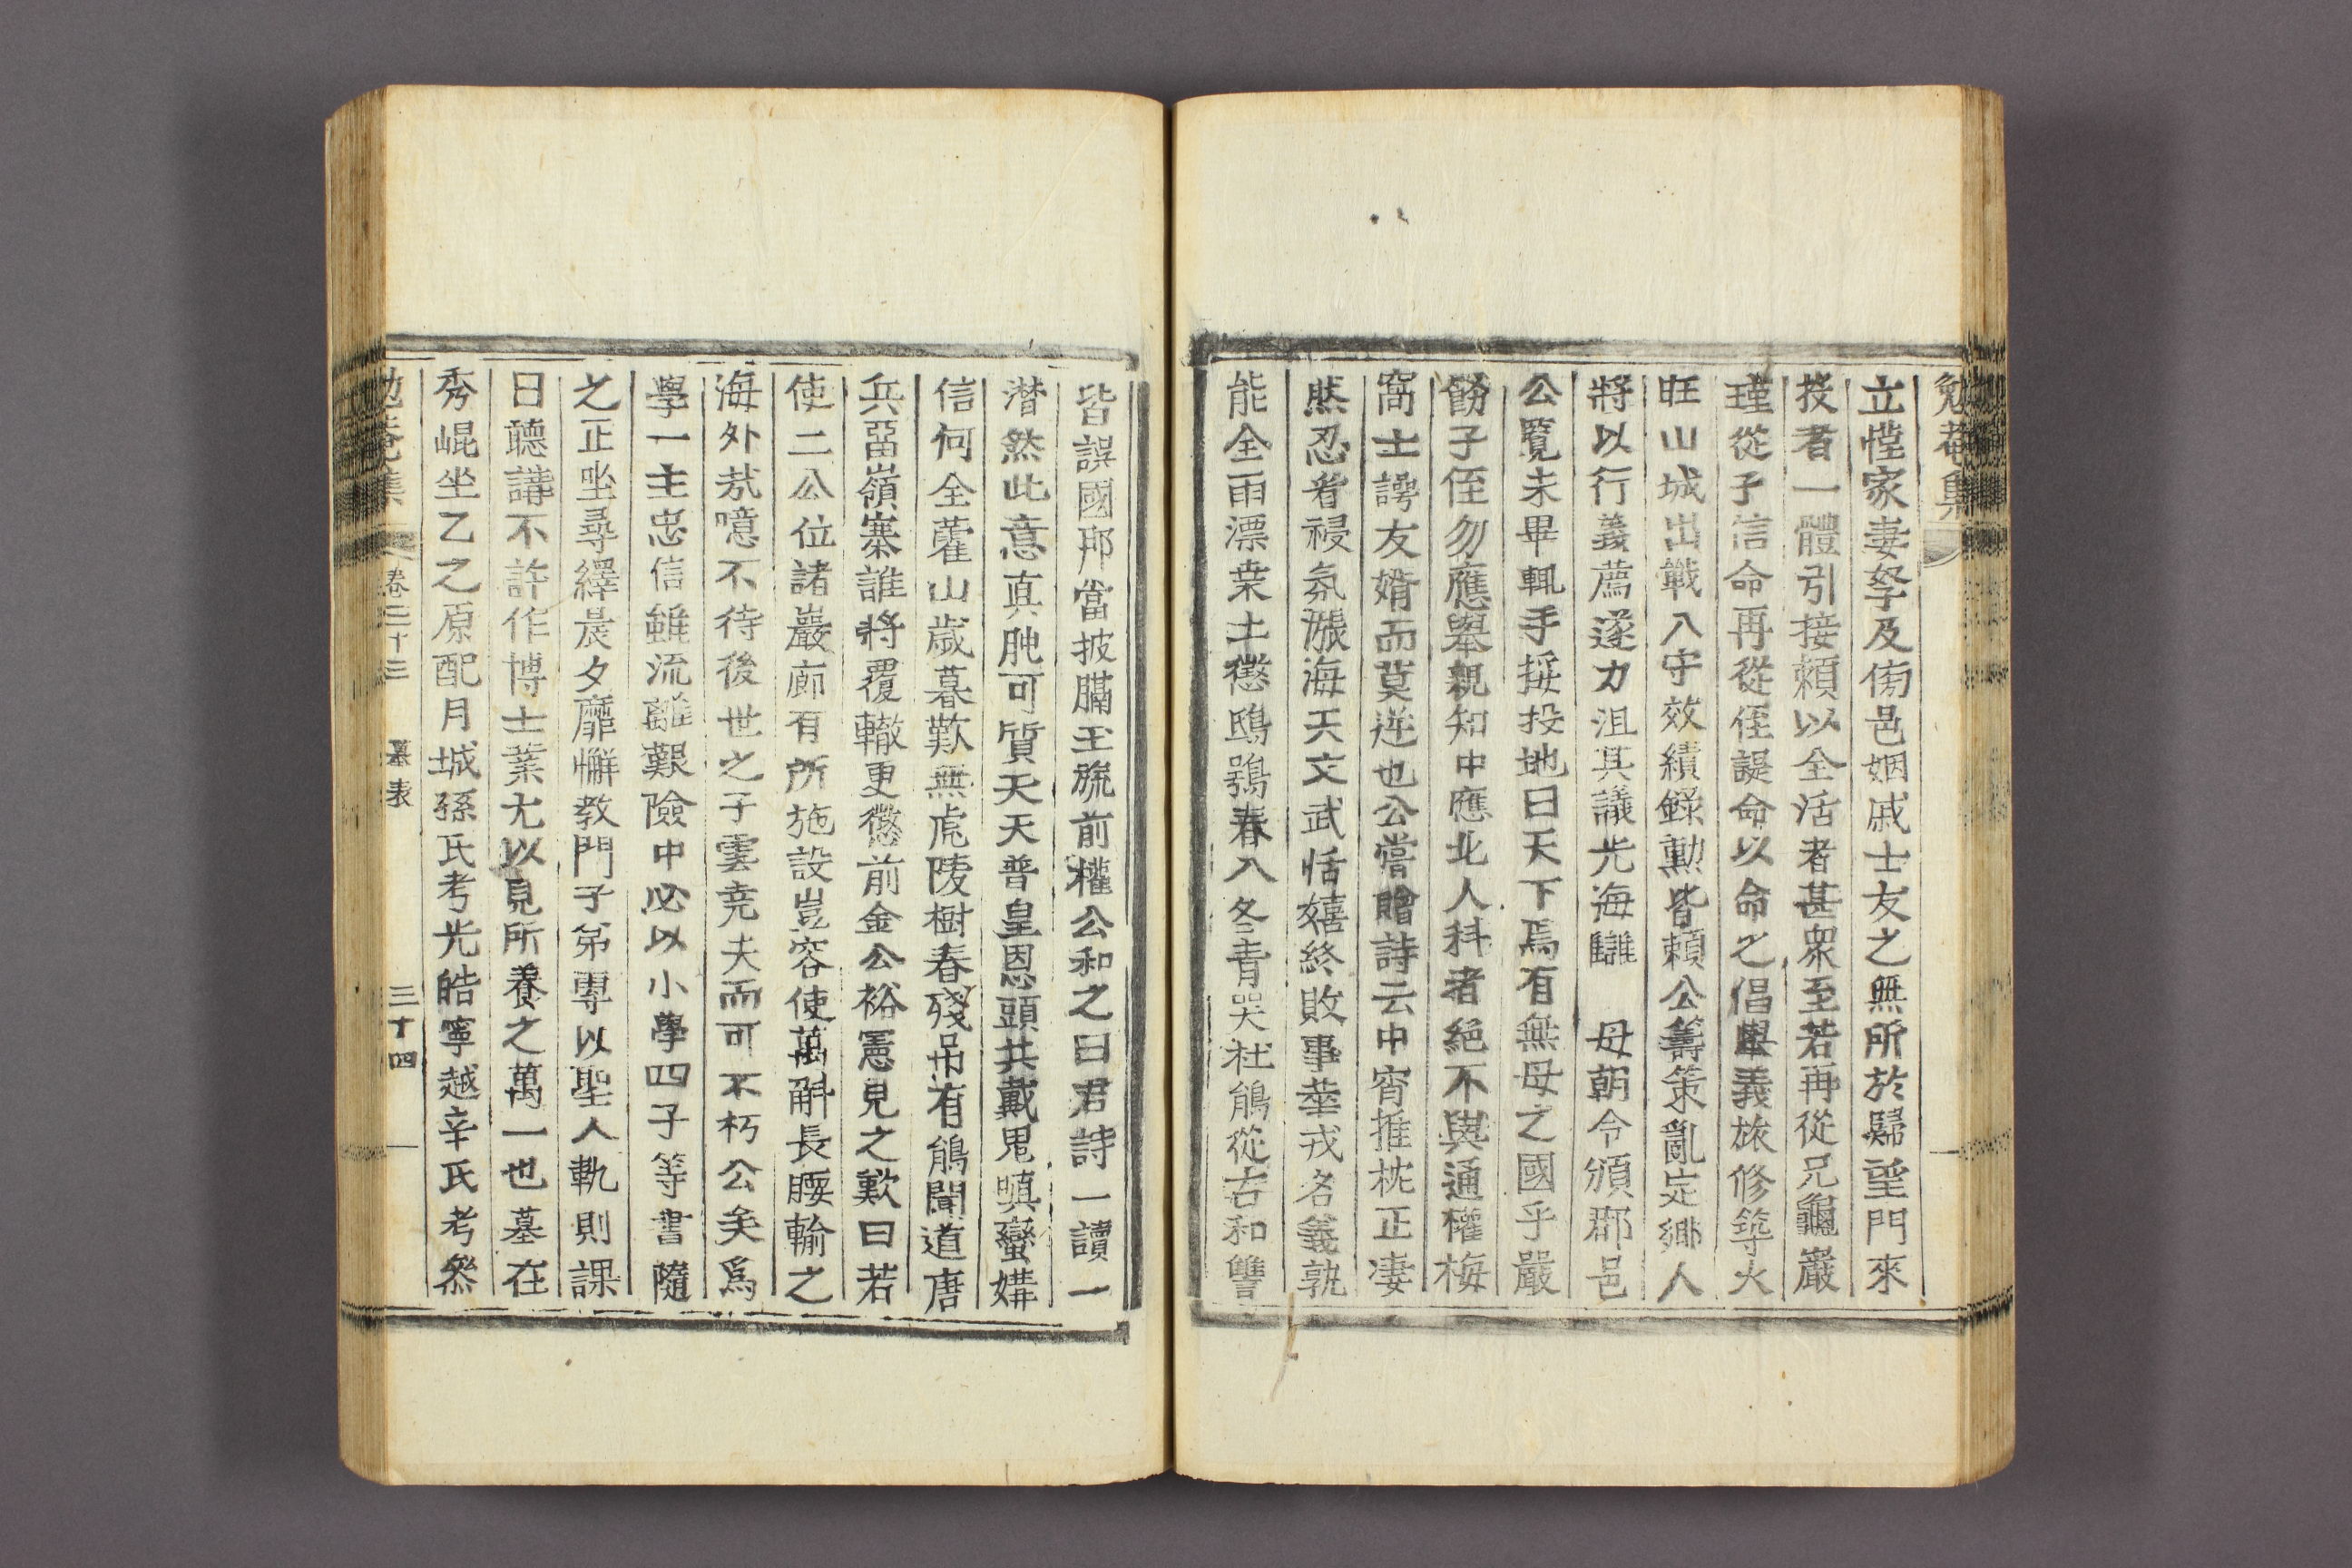 勉菴集
立慌家妻孥及傍邑姻戚士友之無所於歸望門來
投者一體引接賴以全活者甚衆至若再從兄龜巖
瑾從子信命再從侄諟命以命之倡擧義旅修築火
旺山城出戰入守效績錄勳皆賴公籌策亂定鄕人
將以行義薦遂力沮其議光海讎 母朝令頒郡邑
公覽未畢輒手挼投地曰天下焉有無母之國乎嚴
飭子侄勿應擧親知中應北人科者絕不與通權梅
窩士諤友婿而莫逆也公嘗贈詩云中宵推枕正凄
然忍看祲氛漲海天文武恬嬉終敗事華戎名義孰
能全雨漂桑土懲鴟鴞春入冬靑哭杜鵑從古和讐
皆誤國耶當披膈玉旒前權公和之曰君詩一讀一
潸然此意眞肫可質天天普皇恩頭共戴鬼嗔蠻媾
信何全藿山歲暮歎無虎陵樹春殘吊有鵑聞道唐
兵留嶺寨誰將覆轍更懲前金公裕憲見之歎曰若
使二公位諸巖廊有所施設豈容使萬斛長腰輸之
海外哉噫不待後世之子雲堯夫而可不朽公矣爲
學一主忠信雖流離艱險中必以小學四子等書隨
之正坐尋繹晨夕靡懈敎門子弟專以聖人軌則課
日聽講不許作博士業尤以見所養之萬一也墓在
秀崐坐乙之原配月城孫氏考光皓寧越辛氏考粲
勉菴集 卷二十三 墓表 三十四